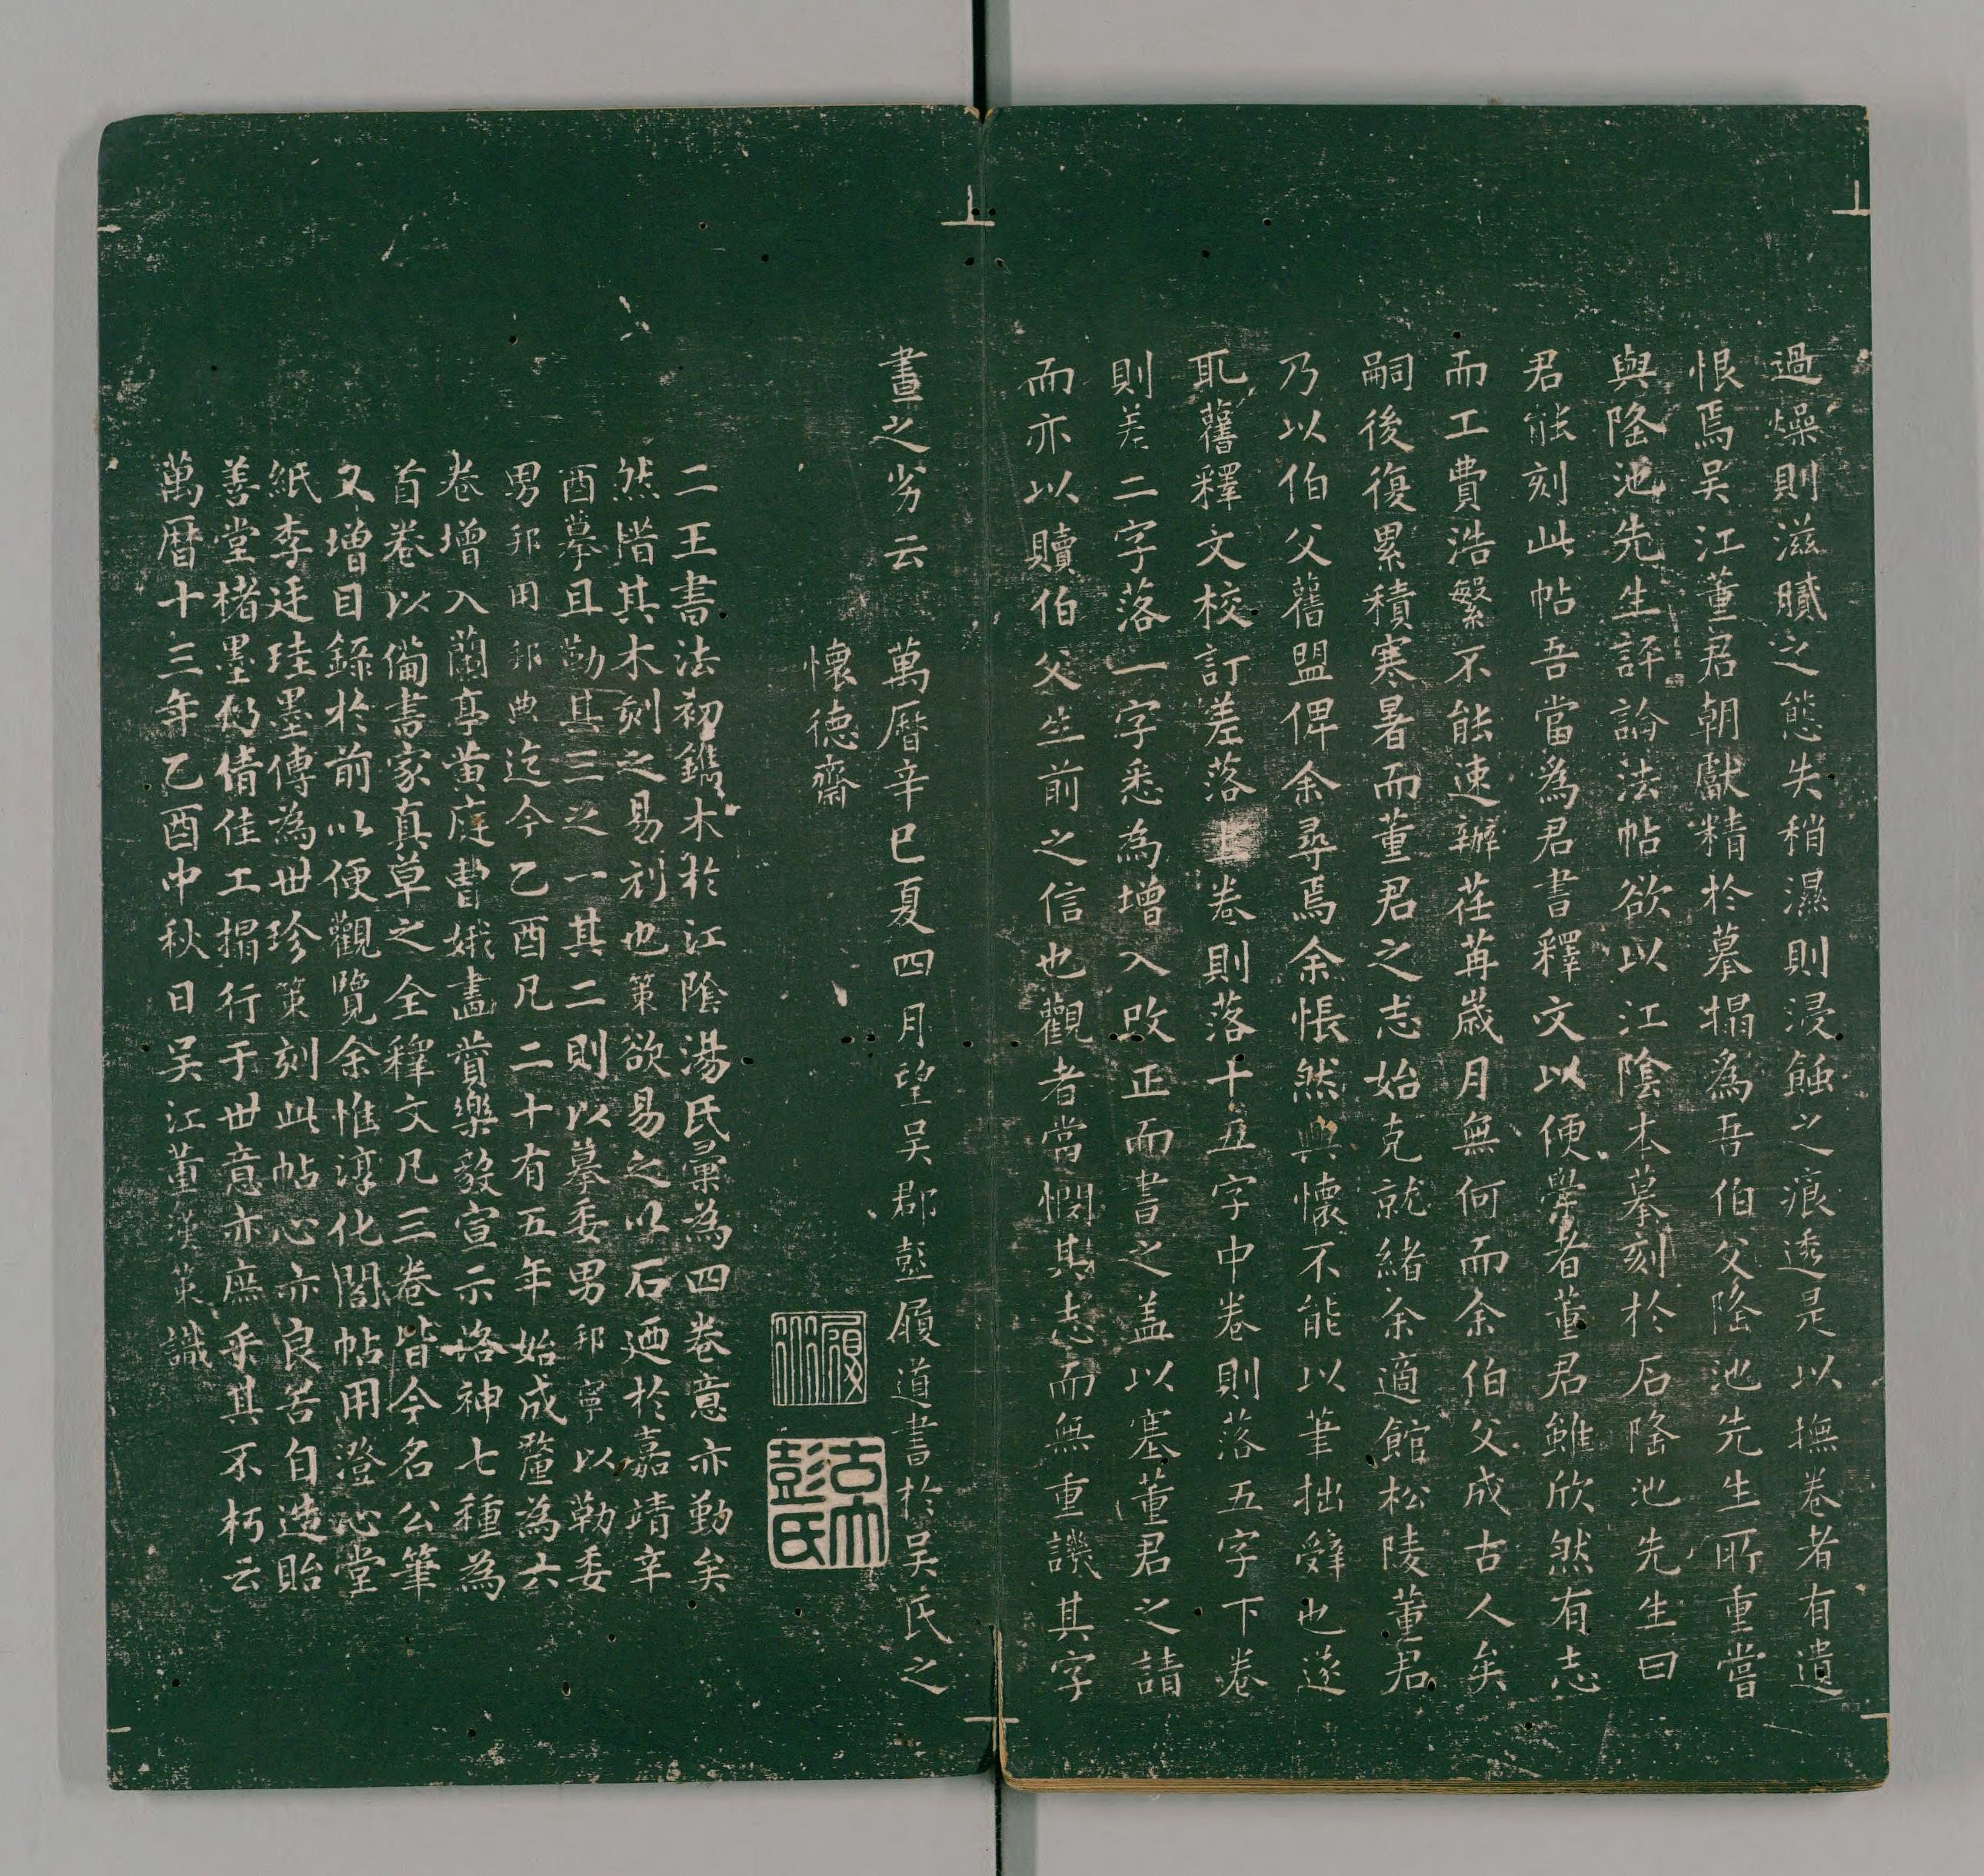 過燥則滋膩之態失稍濕則浸蝕之痕透是以撫卷者有遺
恨焉吴江董君朝獻精於摹搨為吾伯父隆池先生所重嘗
與隆池先生評論法帖欲以江陰本摹刻於石隆池先生曰
君能刻此帖吾當為君書釋文以便學者董君雖欣然有志
而工費浩繁不能速辦荏苒歲月無何而余伯父成古人矣
嗣後復累積寒暑而董君之志始克就緒余適館松陵董君
乃以伯父舊盟俾余尋焉余悵然興懷不能以筆拙辭也遂
取舊釋文校訂差落上卷則落十五字中卷則落五字下卷
則差二字落一字悉為增入改正而書之盖以塞董君之請
而亦以贖伯父生前之信也觀者當憫其志而無重譏其字
畫之劣云 萬曆辛巳夏四月望吴郡彭履道書於吴氏之
懷德齋
二王書法初鐫木於江陰湯氏彙為四卷意亦勤矣
然惜其木刻之易刓也策欲易之以石迺於嘉靖辛
酉摹且勒其三之一其二則以摹委男邦寧以勒委
男邦用邦典迄今乙酉凡二十有五年始成釐為六
卷增入蘭亭黄庭曹娥畫贊樂毅宣示洛神七種為
首卷以備書家真草之全釋文凡三卷皆今名公筆
又增目錄於前以便觀覽余惟淳化閣帖用澄心堂
紙李廷珪墨傳為世珍策刻此帖心亦良苦自造貽
善堂楮墨仍倩佳工搨行于世意亦庶乎其不朽云
萬曆十三年乙酉中秋日吴江董漢策識
彭氏